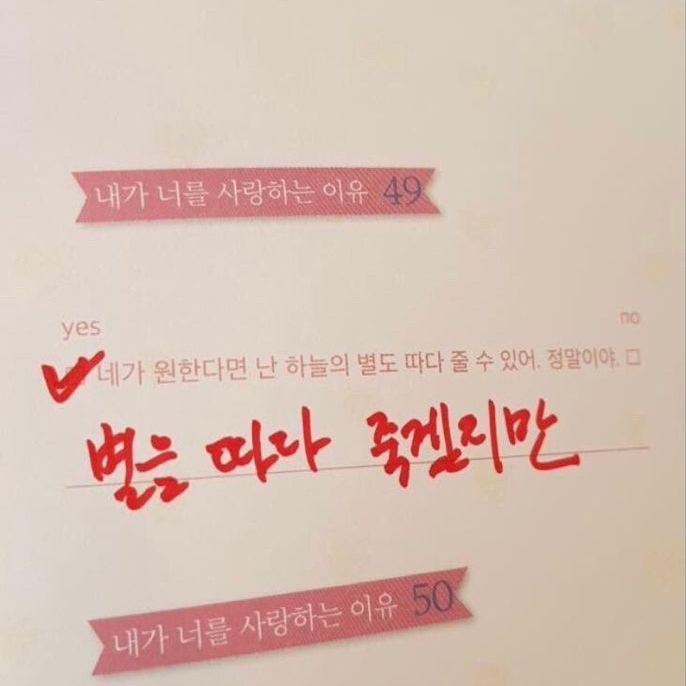 내가 너를 사랑하는 이유 49
yes no
네가 원한다면 난 하늘의 별도 따다 줄 수 있어. 정말이야.
별을 따다 죽겠지만
내가 너를 사랑하는 이유 50